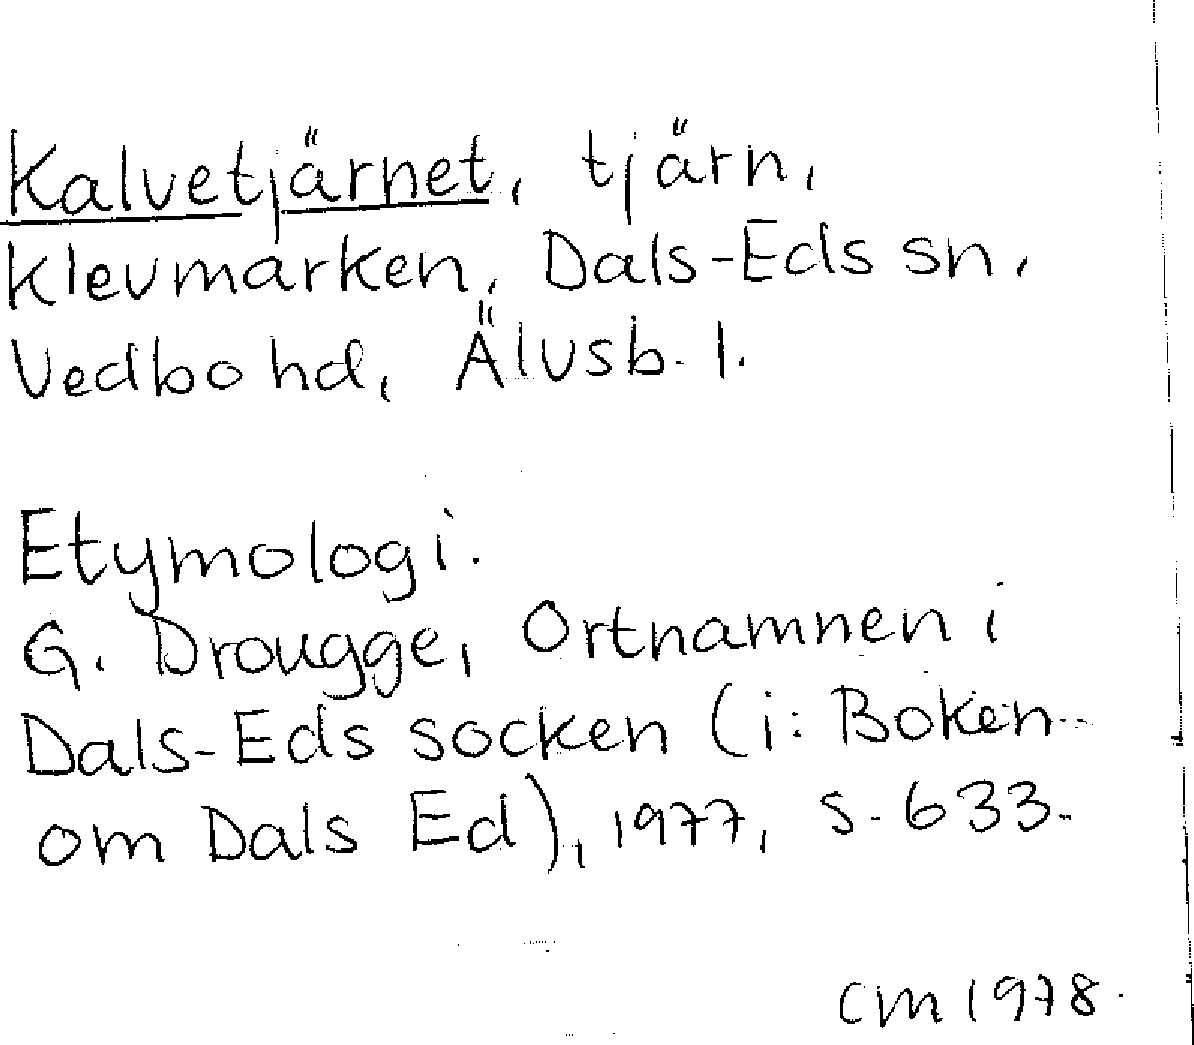 Kalvetjärnet, tjärn,
Klevmarken, Dals-Eds sn,
Vedbo hd, Älvsb. l.
Etymologi.
G. Drougge, Ortnamnen i
Dals-Eds socken (i: Boken
om Dals Ed), 1977, s. 633.
CM 1978.